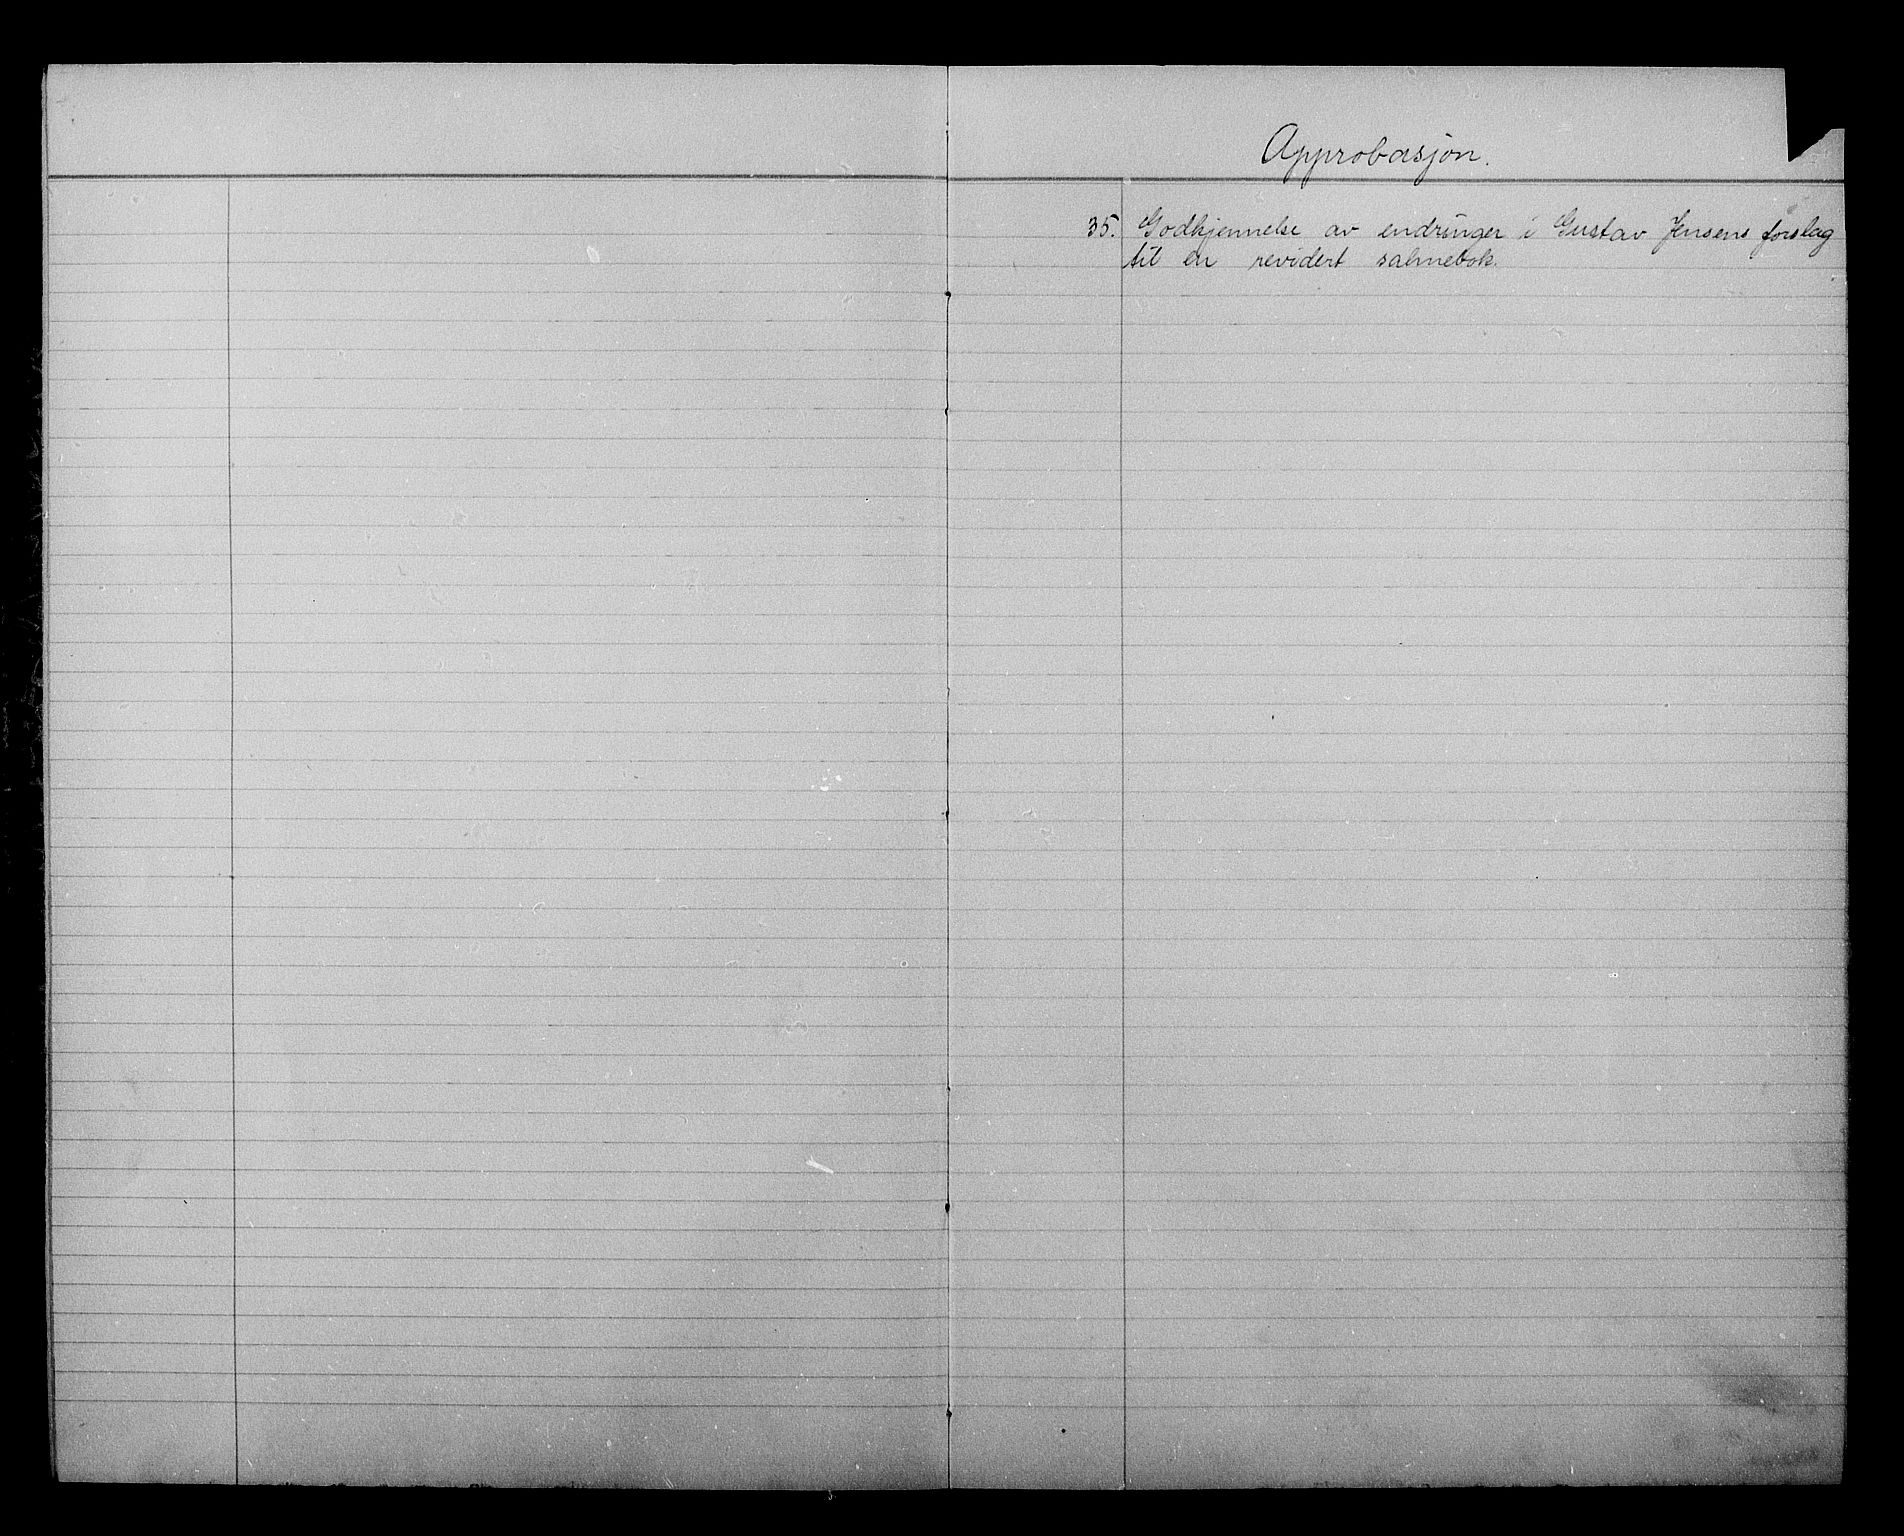 Approbasjon.
35. Godkjennelse av endringer i Gustav Jensens forslag
til en revidert salmebok.